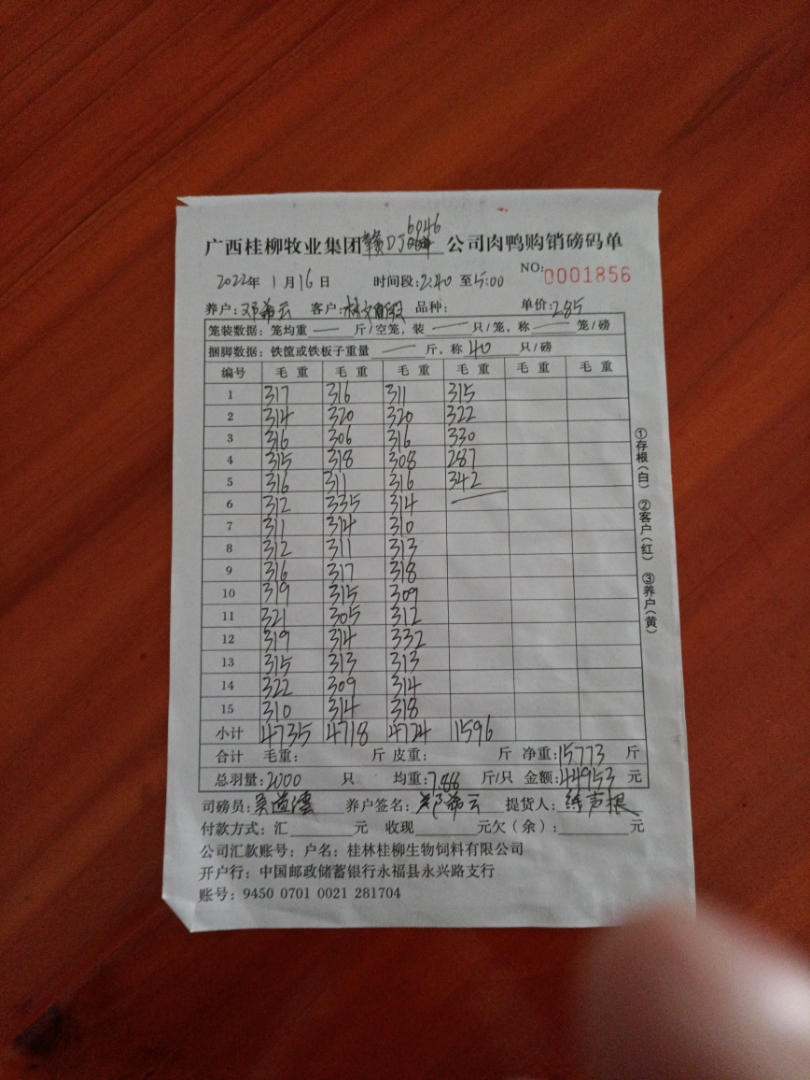 6946
广西桂柳牧业集团赣DJ 公司肉鸭购销磅码单
2022年 1月16日 时间段:2:40 至5:00 NO:0001856
养户:邓希云 客户: 品种: 单价:2.85
笼装数据:笼均重 — 斤/空笼,装 — 只/笼,称 — 笼/磅
捆脚数据:铁筐或铁板子重量 — 斤,称 40 只/磅
编号 毛重 毛重 毛重 毛重 毛重 毛重
1 317 316 311 315
2 314 320 320 322
3 316 306 316 330
4 315 318 308 287
5 316 311 316 342
6 312 335 314 —
7 311 314 310
8 312 311 313
9 316 317 318
10 319 315 309
11 321 305 312
12 319 314 332
13 315 313 313
14 322 309 314
15 310 314 318
小计 4735 4718 4724 1596
合计 毛重: 斤 皮重: 斤 净重:15773 斤
总羽量:2000 只 均重:7.88 斤/只 金额:44953 元
司磅员: 养户签名:邓希云 提货人:
付款方式:汇 元 收现 元欠(余): 元
公司汇款账号:户名:桂林桂柳生物饲料有限公司
开户行:中国邮政储蓄银行永福县永兴路支行
账号:9450 0701 0021 281704
①存根(白) ②客户(红) ③养户(黄)